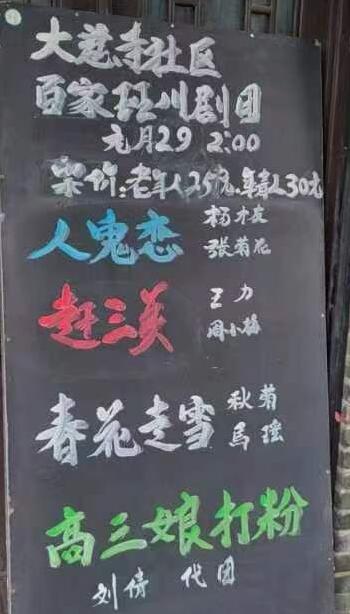 大慈寺社区
百家班川剧团
元月29 2:00
票价:老年人25元.年青人30元
人鬼恋 杨才友
张菊花
赶三关 王力
周小梅
春花走雪 秋菊
馬瑶
高三娘打粉
刘倩 代团